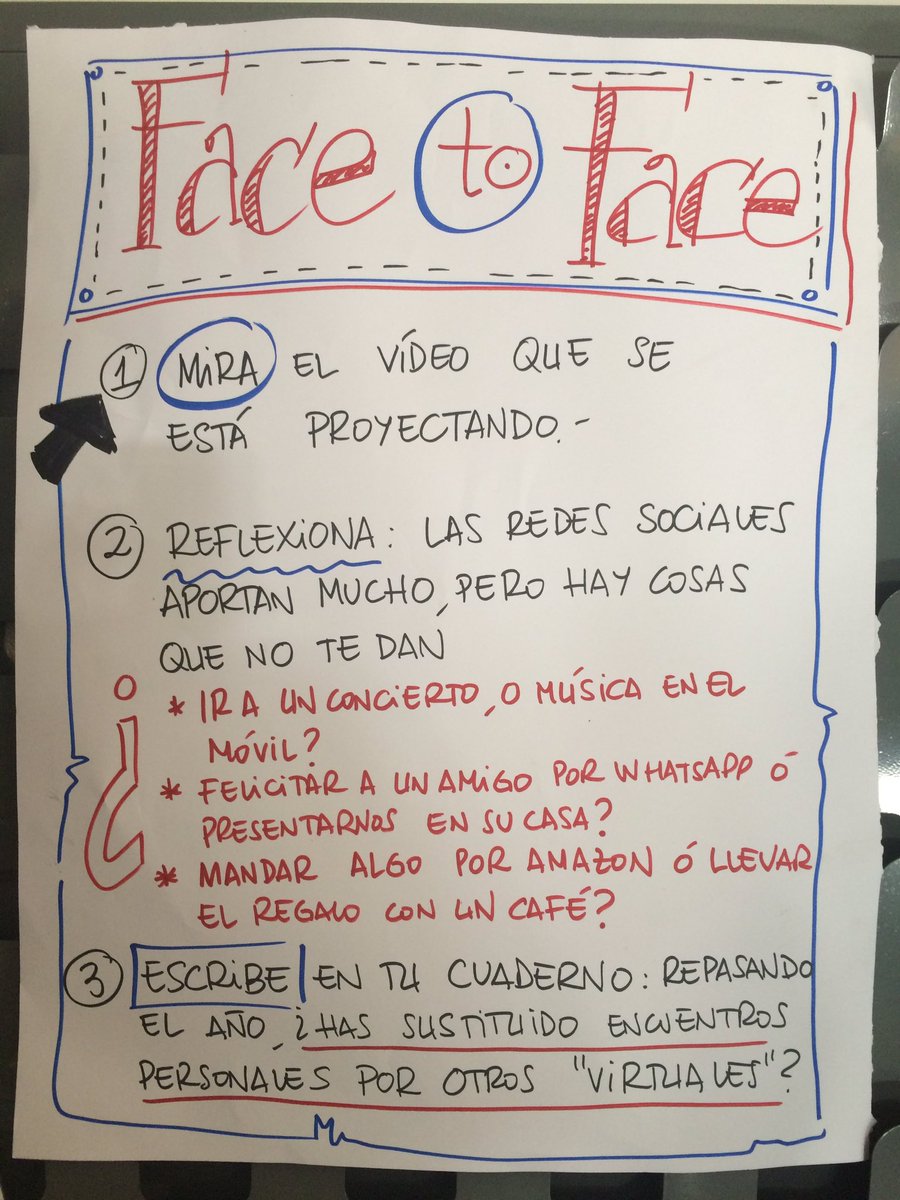 Face to Face
1 MiRA EL VÍDEO QUE SE
ESTÁ PROYECTANDO.-
2 REFLEXiONA: LAS REDES SOCiALES
APORTAN MUCHO, PERO HAY COSAS
QUE NO TE DAN
¿ * IR A UN CONCiERTO, O MÚSiCA EN EL
MÓViL?
* FELiCiTAR A UN AMiGO POR WHATSAPP Ó
PRESENTARNOS EN SU CASA?
* MANDAR ALGO POR AMAZON Ó LLEVAR
EL REGALO CON UN CAFÉ?
3 ESCRiBE EN TU CUADERNO: REPASANDO
EL AÑO, ¿HAS SUSTiTUiDO ENCUENTROS
PERSONALES POR OTROS "ViRTUALES"?